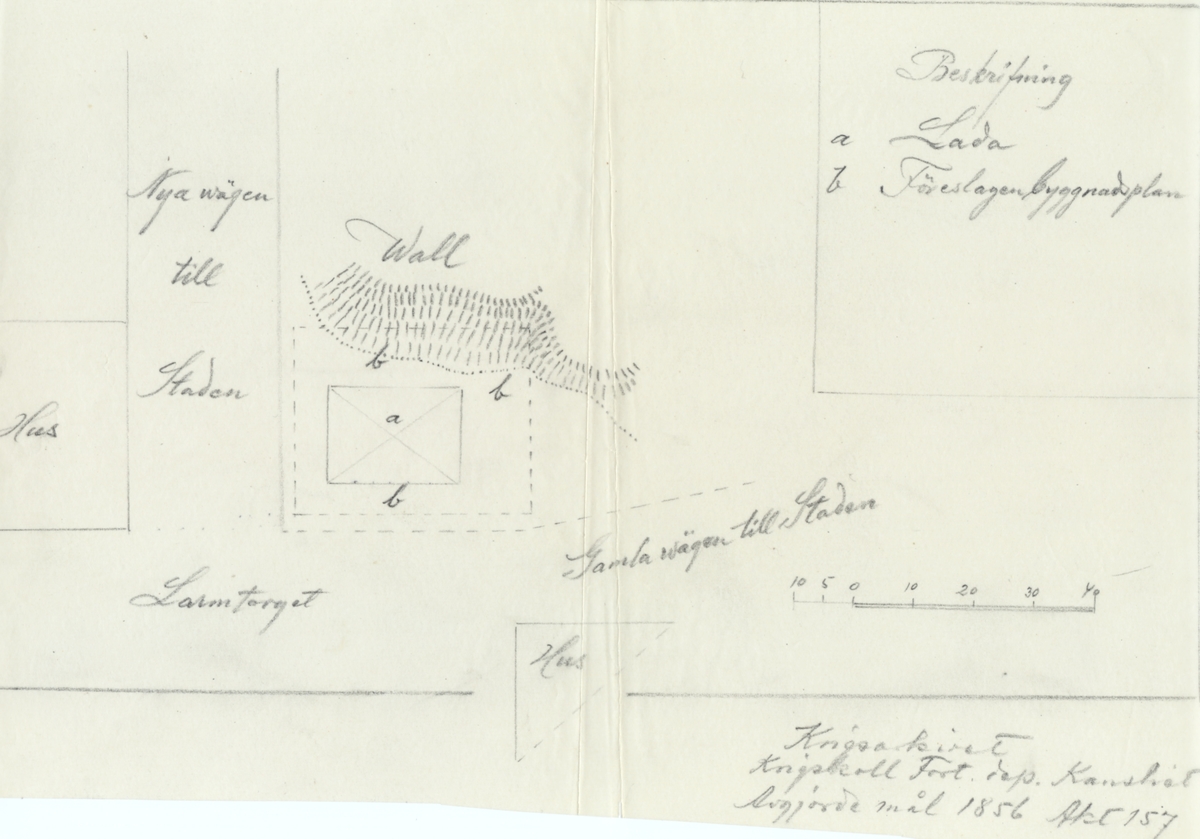 Beskrifning
a Lada
b Föreslagen byggnadsplan
Nya wägen
till
Staden
Wall
Hus
b
b
a
b
Gamla wägen till Staden
10 5 0 10 20 30 40
Larmtorget
Hus
Krigsarkivet
Krigskoll Fort. dep. Kansliet
Avgjorde mål 1856 Akt 157